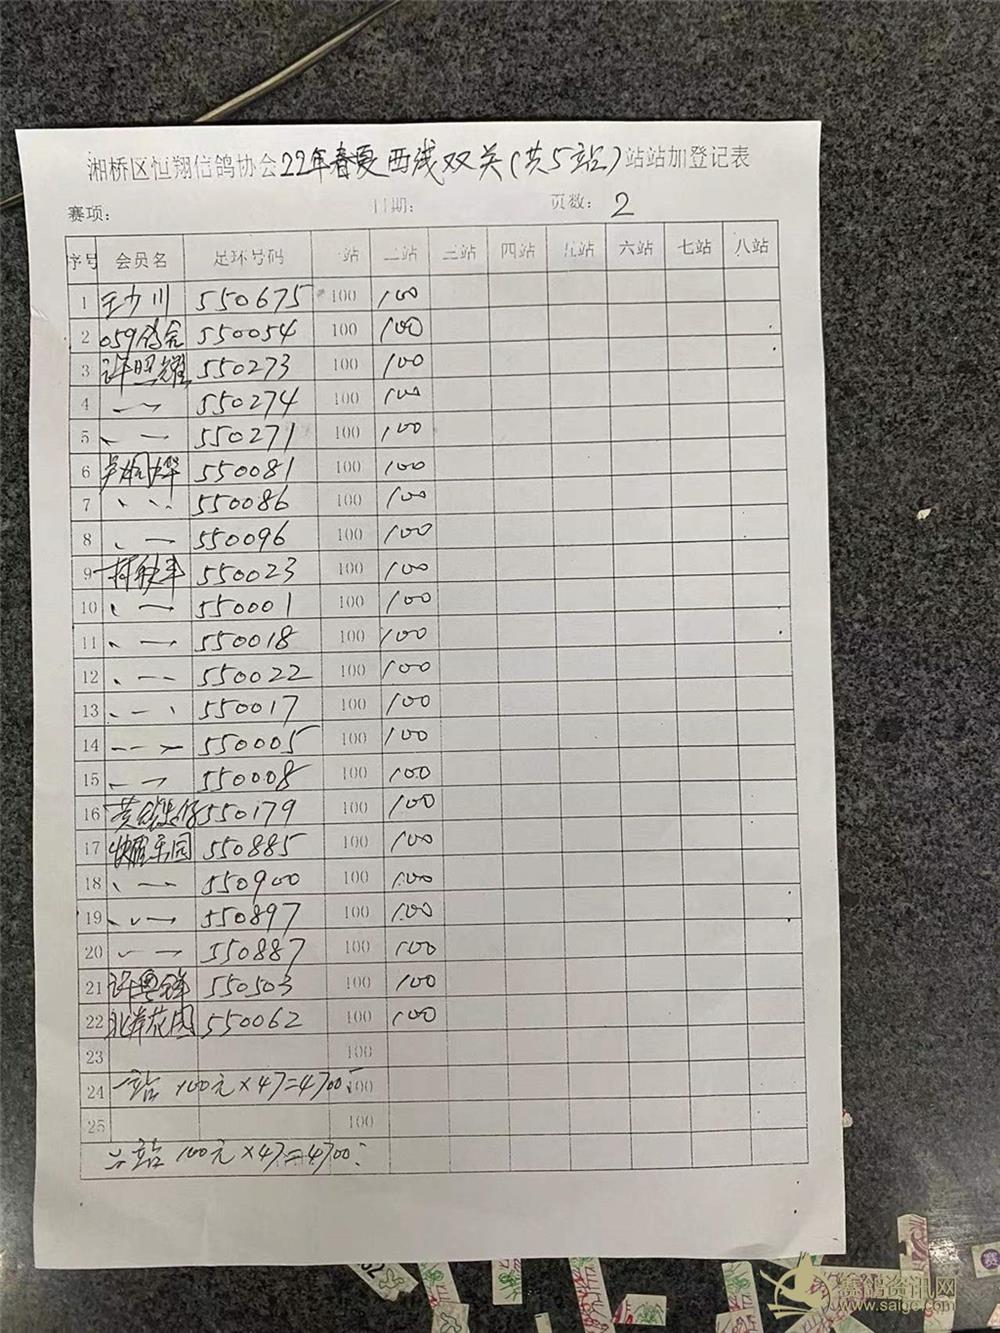 湘桥区恒翔信鸽协会22年春夏西线双关(共5站)站站加登记表
赛项: 日期: 页数: 2
序号 会员名 足环号码 一站 二站 三站 四站 五站 六站 七站 八站
1 王少川 550675 100 100
2 059鸽舍 550054 100 100
3 许照耀 550273 100 100
4 550274 100 100
5 550271 100 100
6 550081 100 100
7 550086 100 100
8 550096 100 100
9 550023 100 100
10 550001 100 100
11 550018 100 100
12 550022 100 100
13 550017 100 100
14 550005 100 100
15 550008 100 100
16 550179 100 100
17 550885 100 100
18 550900 100 100
19 550897 100 100
20 550887 100 100
21 550503 100 100
22 北岸花园 550062 100 100
23 100
24 一站 100元×47=4700 100
25 100
二站 100元×47=4700
赛鸽资讯网
www.saige.com